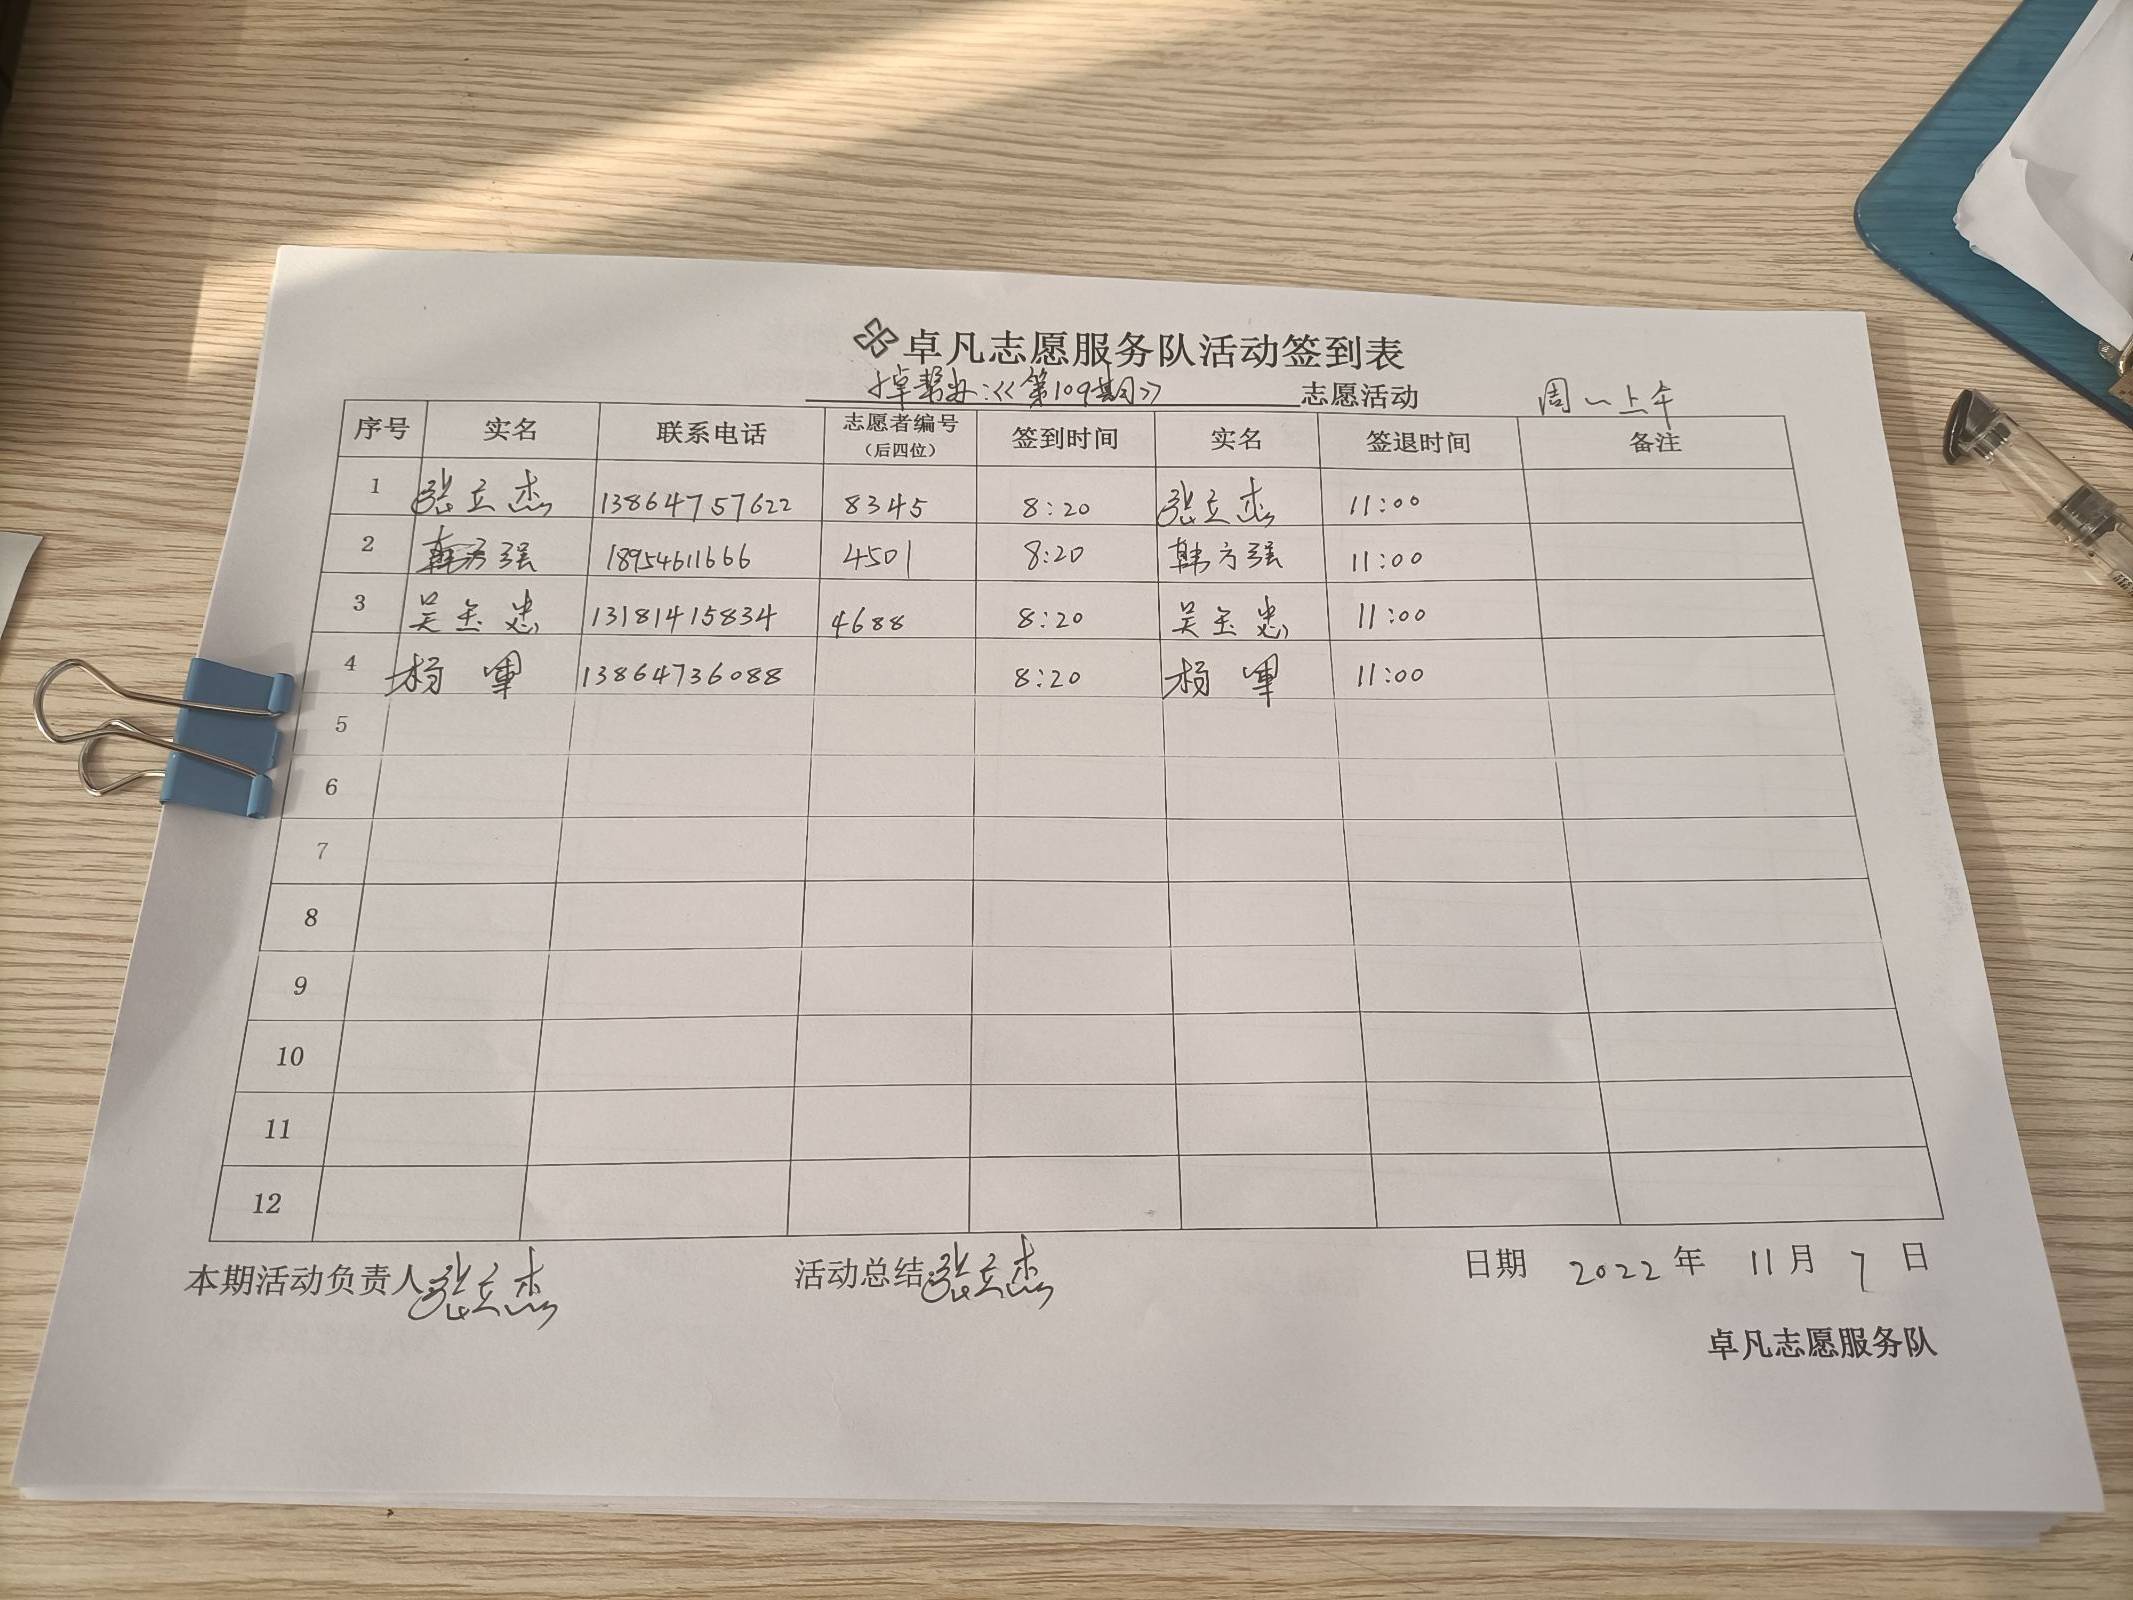 卓凡志愿服务队活动签到表
帮办:《第109期》 志愿活动 周一上午
序号 实名 联系电话 志愿者编号(后四位) 签到时间 实名 签退时间 备注
1 张立杰 13864757622 8345 8:20 张立杰 11:00
2 韩方强 18954611666 4501 8:20 韩方强 11:00
3 吴玉忠 13181415834 4688 8:20 吴玉忠 11:00
4 杨军 13864736088 8:20 杨军 11:00
5
6
7
8
9
10
11
12
本期活动负责人:张立杰 活动总结:张立杰 日期 2022 年 11 月 7 日
卓凡志愿服务队